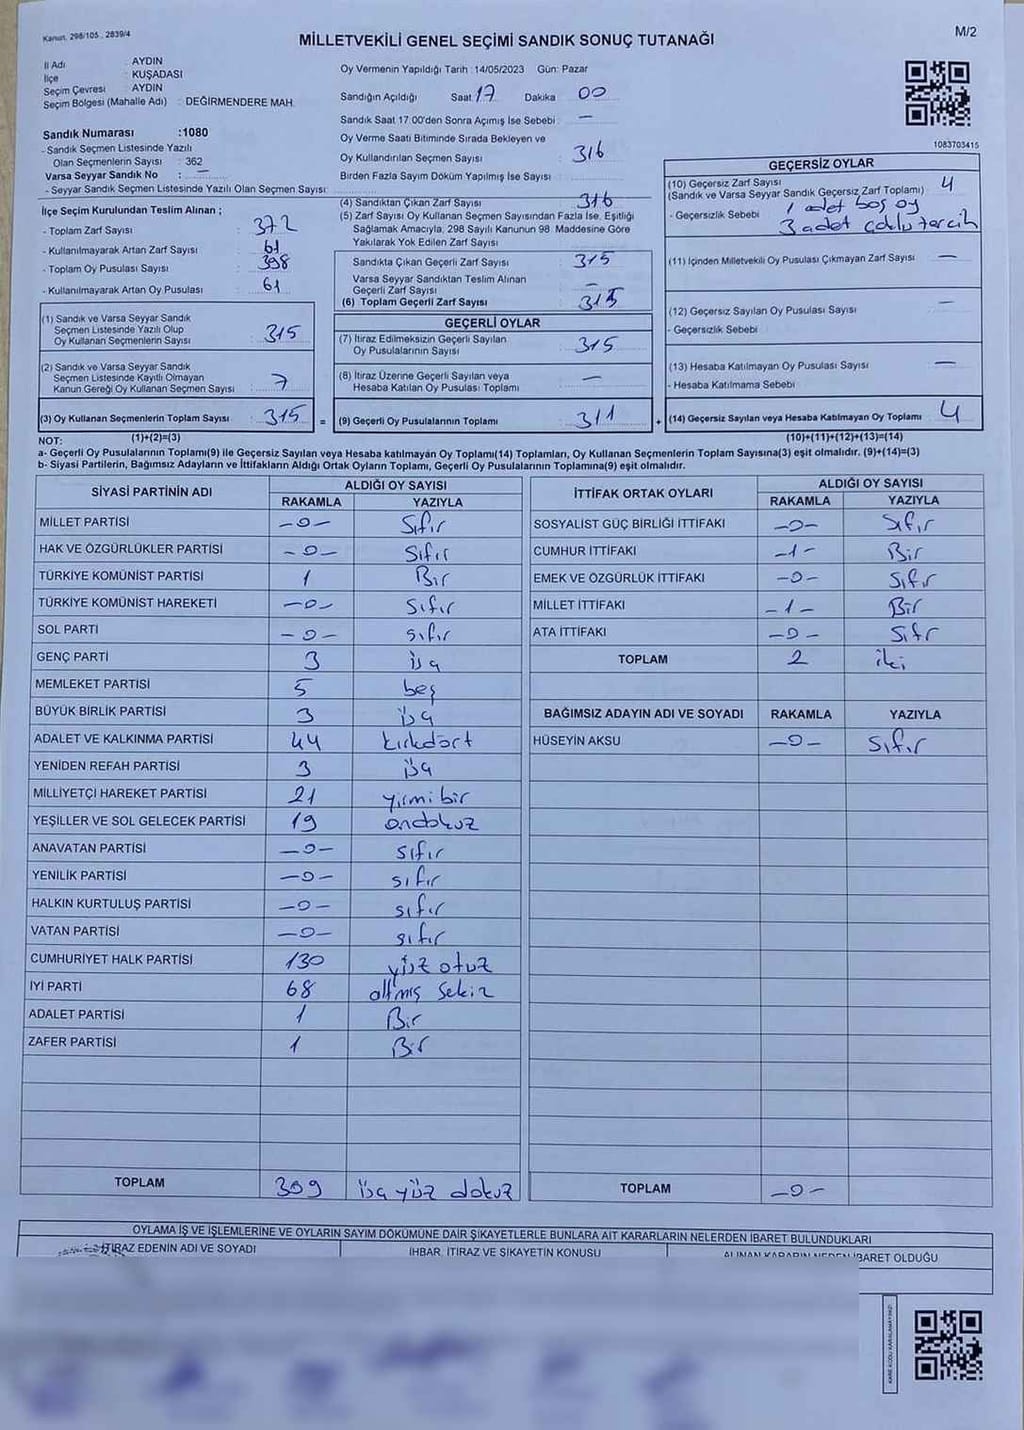 Kanun. 298/105 , 2839/4
M/2
MİLLETVEKİLİ GENEL SEÇİMİ SANDIK SONUÇ TUTANAĞI
İl Adı : AYDIN
İlçe : KUŞADASI
Seçim Çevresi : AYDIN
Seçim Bölgesi (Mahalle Adı) : DEĞİRMENDERE MAH.
Sandık Numarası :1080
- Sandık Seçmen Listesinde Yazılı
Olan Seçmenlerin Sayısı : 362
Varsa Seyyar Sandık No : —
- Seyyar Sandık Seçmen Listesinde Yazılı Olan Seçmen Sayısı:
Oy Vermenin Yapıldığı Tarih :14/05/2023 Gün: Pazar
Sandığın Açıldığı Saat 17 Dakika 00
Sandık Saat 17 00'den Sonra Açımış İse Sebebi : —
Oy Verme Saati Bitiminde Sırada Bekleyen ve
Oy Kullandırılan Seçmen Sayısı : 316
Birden Fazla Sayım Döküm Yapılmış İse Sayısı :
1083703415
İlçe Seçim Kurulundan Teslim Alınan ;
- Toplam Zarf Sayısı : 372
- Kullanılmayarak Artan Zarf Sayısı : 61
- Toplam Oy Pusulası Sayısı : 398
- Kullanılmayarak Artan Oy Pusulası : 61
(1) Sandık ve Varsa Seyyar Sandık
Seçmen Listesinde Yazılı Olup
Oy Kullanan Seçmenlerin Sayısı : 315
(2) Sandık ve Varsa Seyyar Sandık
Seçmen Listesinde Kayıtlı Olmayan
Kanun Gereği Oy Kullanan Seçmen Sayısı :
(3) Oy Kullanan Seçmenlerin Toplam Sayısı : 315 =
(4) Sandıktan Çıkan Zarf Sayısı : 316
(5) Zarf Sayısı Oy Kullanan Seçmen Sayısından Fazla İse, Eşitliği
Sağlamak Amacıyla, 298 Sayılı Kanunun 98 Maddesine Göre
Yakılarak Yok Edilen Zarf Sayısı :
Sandıkta Çıkan Geçerli Zarf Sayısı : 315
Varsa Seyyar Sandıktan Teslim Alınan
Geçerli Zarf Sayısı : —
(6) Toplam Geçerli Zarf Sayısı : 315
GEÇERLİ OYLAR
(7) İtiraz Edilmeksizin Geçerli Sayılan
Oy Pusulalarının Sayısı : 315
(8) İtiraz Üzerine Geçerli Sayılan veya
Hesaba Katılan Oy Pusulası Toplamı : —
(9) Geçerli Oy Pusulalarının Toplamı : 311 +
GEÇERSİZ OYLAR
(10) Geçersiz Zarf Sayısı
(Sandık ve Varsa Seyyar Sandık Geçersiz Zarf Toplamı) : 4
- Geçersizlik Sebebi : 1 adet boş oy
3 adet çoklu tercih
(11) İçinden Milletvekili Oy Pusulası Çıkmayan Zarf Sayısı : —
(12) Geçersiz Sayılan Oy Pusulası Sayısı : —
- Geçersizlik Sebebi
(13) Hesaba Katılmayan Oy Pusulası Sayısı : —
- Hesaba Katılmama Sebebi
(14) Geçersiz Sayılan veya Hesaba Katılmayan Oy Toplamı : 4
NOT: (1)+(2)=(3)
(10)+(11)+(12)+(13)=(14)
a- Geçerli Oy Pusulalarının Toplamı(9) ile Geçersiz Sayılan veya Hesaba katılmayan Oy Toplamı(14) Toplamları, Oy Kullanan Seçmenlerin Toplam Sayısına(3) eşit olmalıdır. (9)+(14)=(3)
b- Siyasi Partilerin, Bağımsız Adayların ve İttifakların Aldığı Ortak Oyların Toplamı, Geçerli Oy Pusulalarının Toplamına(9) eşit olmalıdır.
SİYASİ PARTİNİN ADI ALDIĞI OY SAYISI
RAKAMLA YAZIYLA
MİLLET PARTİSİ —0— Sıfır
HAK VE ÖZGÜRLÜKLER PARTİSİ —0— Sıfır
TÜRKİYE KOMÜNİST PARTİSİ 1 Bir
TÜRKİYE KOMÜNİST HAREKETİ —0— Sıfır
SOL PARTİ —0— sıfır
GENÇ PARTİ 3 üç
MEMLEKET PARTİSİ 5 beş
BÜYÜK BİRLİK PARTİSİ 3 üç
ADALET VE KALKINMA PARTİSİ 44 kırkdört
YENİDEN REFAH PARTİSİ 3 üç
MİLLİYETÇİ HAREKET PARTİSİ 21 yirmibir
YEŞİLLER VE SOL GELECEK PARTİSİ 19 ondokuz
ANAVATAN PARTİSİ —0— sıfır
YENİLİK PARTİSİ —0— sıfır
HALKIN KURTULUŞ PARTİSİ —0— sıfır
VATAN PARTİSİ —0— sıfır
CUMHURİYET HALK PARTİSİ 130 yüz otuz
İYİ PARTİ 68 altmış sekiz
ADALET PARTİSİ 1 Bir
ZAFER PARTİSİ 1 Bir
TOPLAM 309 üç yüz dokuz
İTTİFAK ORTAK OYLARI ALDIĞI OY SAYISI
RAKAMLA YAZIYLA
SOSYALİST GÜÇ BİRLİĞİ İTTİFAKI —0— Sıfır
CUMHUR İTTİFAKI —1— Bir
EMEK VE ÖZGÜRLÜK İTTİFAKI —0— Sıfır
MİLLET İTTİFAKI —1— Bir
ATA İTTİFAKI —0— Sıfır
TOPLAM 2 iki
BAĞIMSIZ ADAYIN ADI VE SOYADI RAKAMLA YAZIYLA
HÜSEYİN AKSU —0— Sıfır
TOPLAM —0—
OYLAMA İŞ VE İŞLEMLERİNE VE OYLARIN SAYIM DÖKÜMÜNE DAİR ŞİKAYETLERLE BUNLARA AİT KARARLARIN NELERDEN İBARET BULUNDUKLARI
İTİRAZ EDENİN ADI VE SOYADI İHBAR, İTİRAZ VE ŞİKAYETİN KONUSU ALINAN KARARIN NEDEN İBARET OLDUĞU
KARE KODU KARALAMAYINIZ!